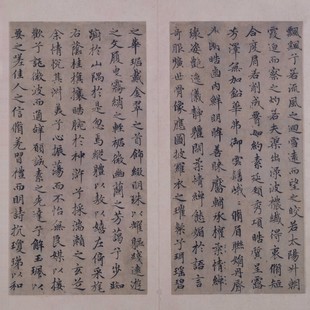 飄飄兮若流風之迴雪遠而望之皎若太陽升朝
霞迫而察之灼若芙蕖出淥波穠纖得衷脩短
合度肩若削成腰如約素延頸秀項皓質呈露
芳澤無加鉛華弗御雲髻峨峨脩眉聯娟丹脣
外朗皓齒內鮮明眸善睞靨輔承權
瓌姿豔逸儀靜體閑柔情綽態媚於語言
奇服曠世骨像應圖披羅衣之璀粲兮珥瑤碧
之華琚戴金翠之首飾綴明珠以耀軀踐遠遊
之文履曳霧綃之輕裾微幽蘭之芳藹兮步踟
躕於山隅於是忽焉縱體以遨以嬉左倚采旄
右蔭桂旗攘皓腕於神滸兮採湍瀨之玄芝
余情悅其淑美兮心振蕩而不怡無良媒以接
歡兮託微波而通辭願誠素之先達兮解玉珮以
要之嗟佳人之信脩羌習禮而明詩抗瓊珶以和